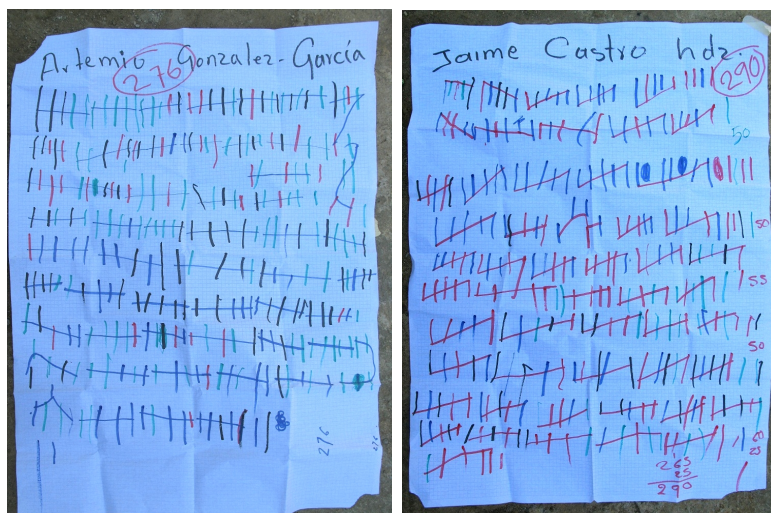 Artemio Gonzalez-García
276
276
276
Jaime Castro hdz
290
50
50
55
50
60
25
265
25
290